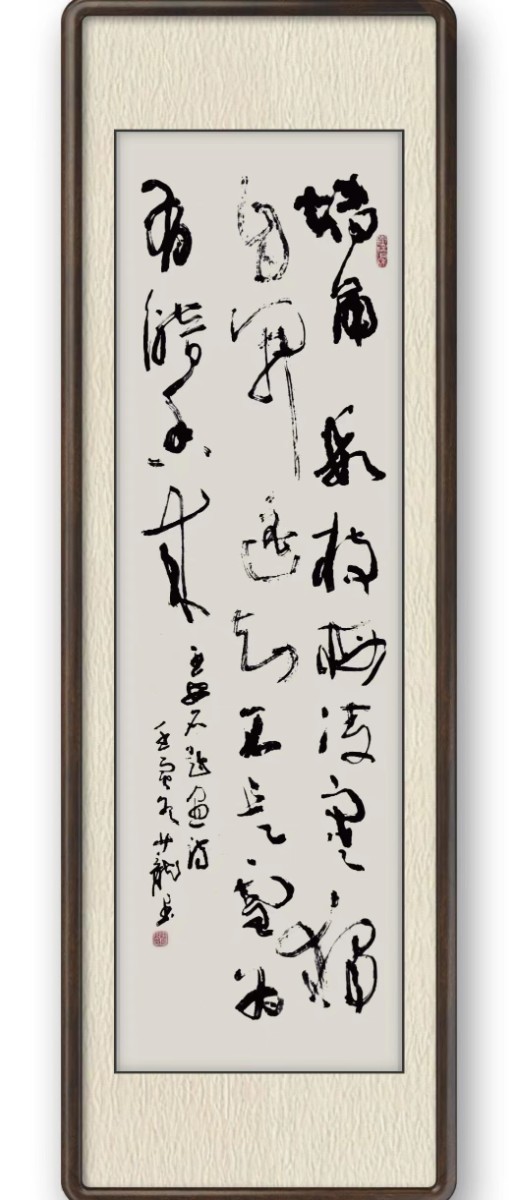 墙角数枝梅凌寒独
自开遥知不是雪为
有暗香来
王安石诗
壬寅冬少龍书